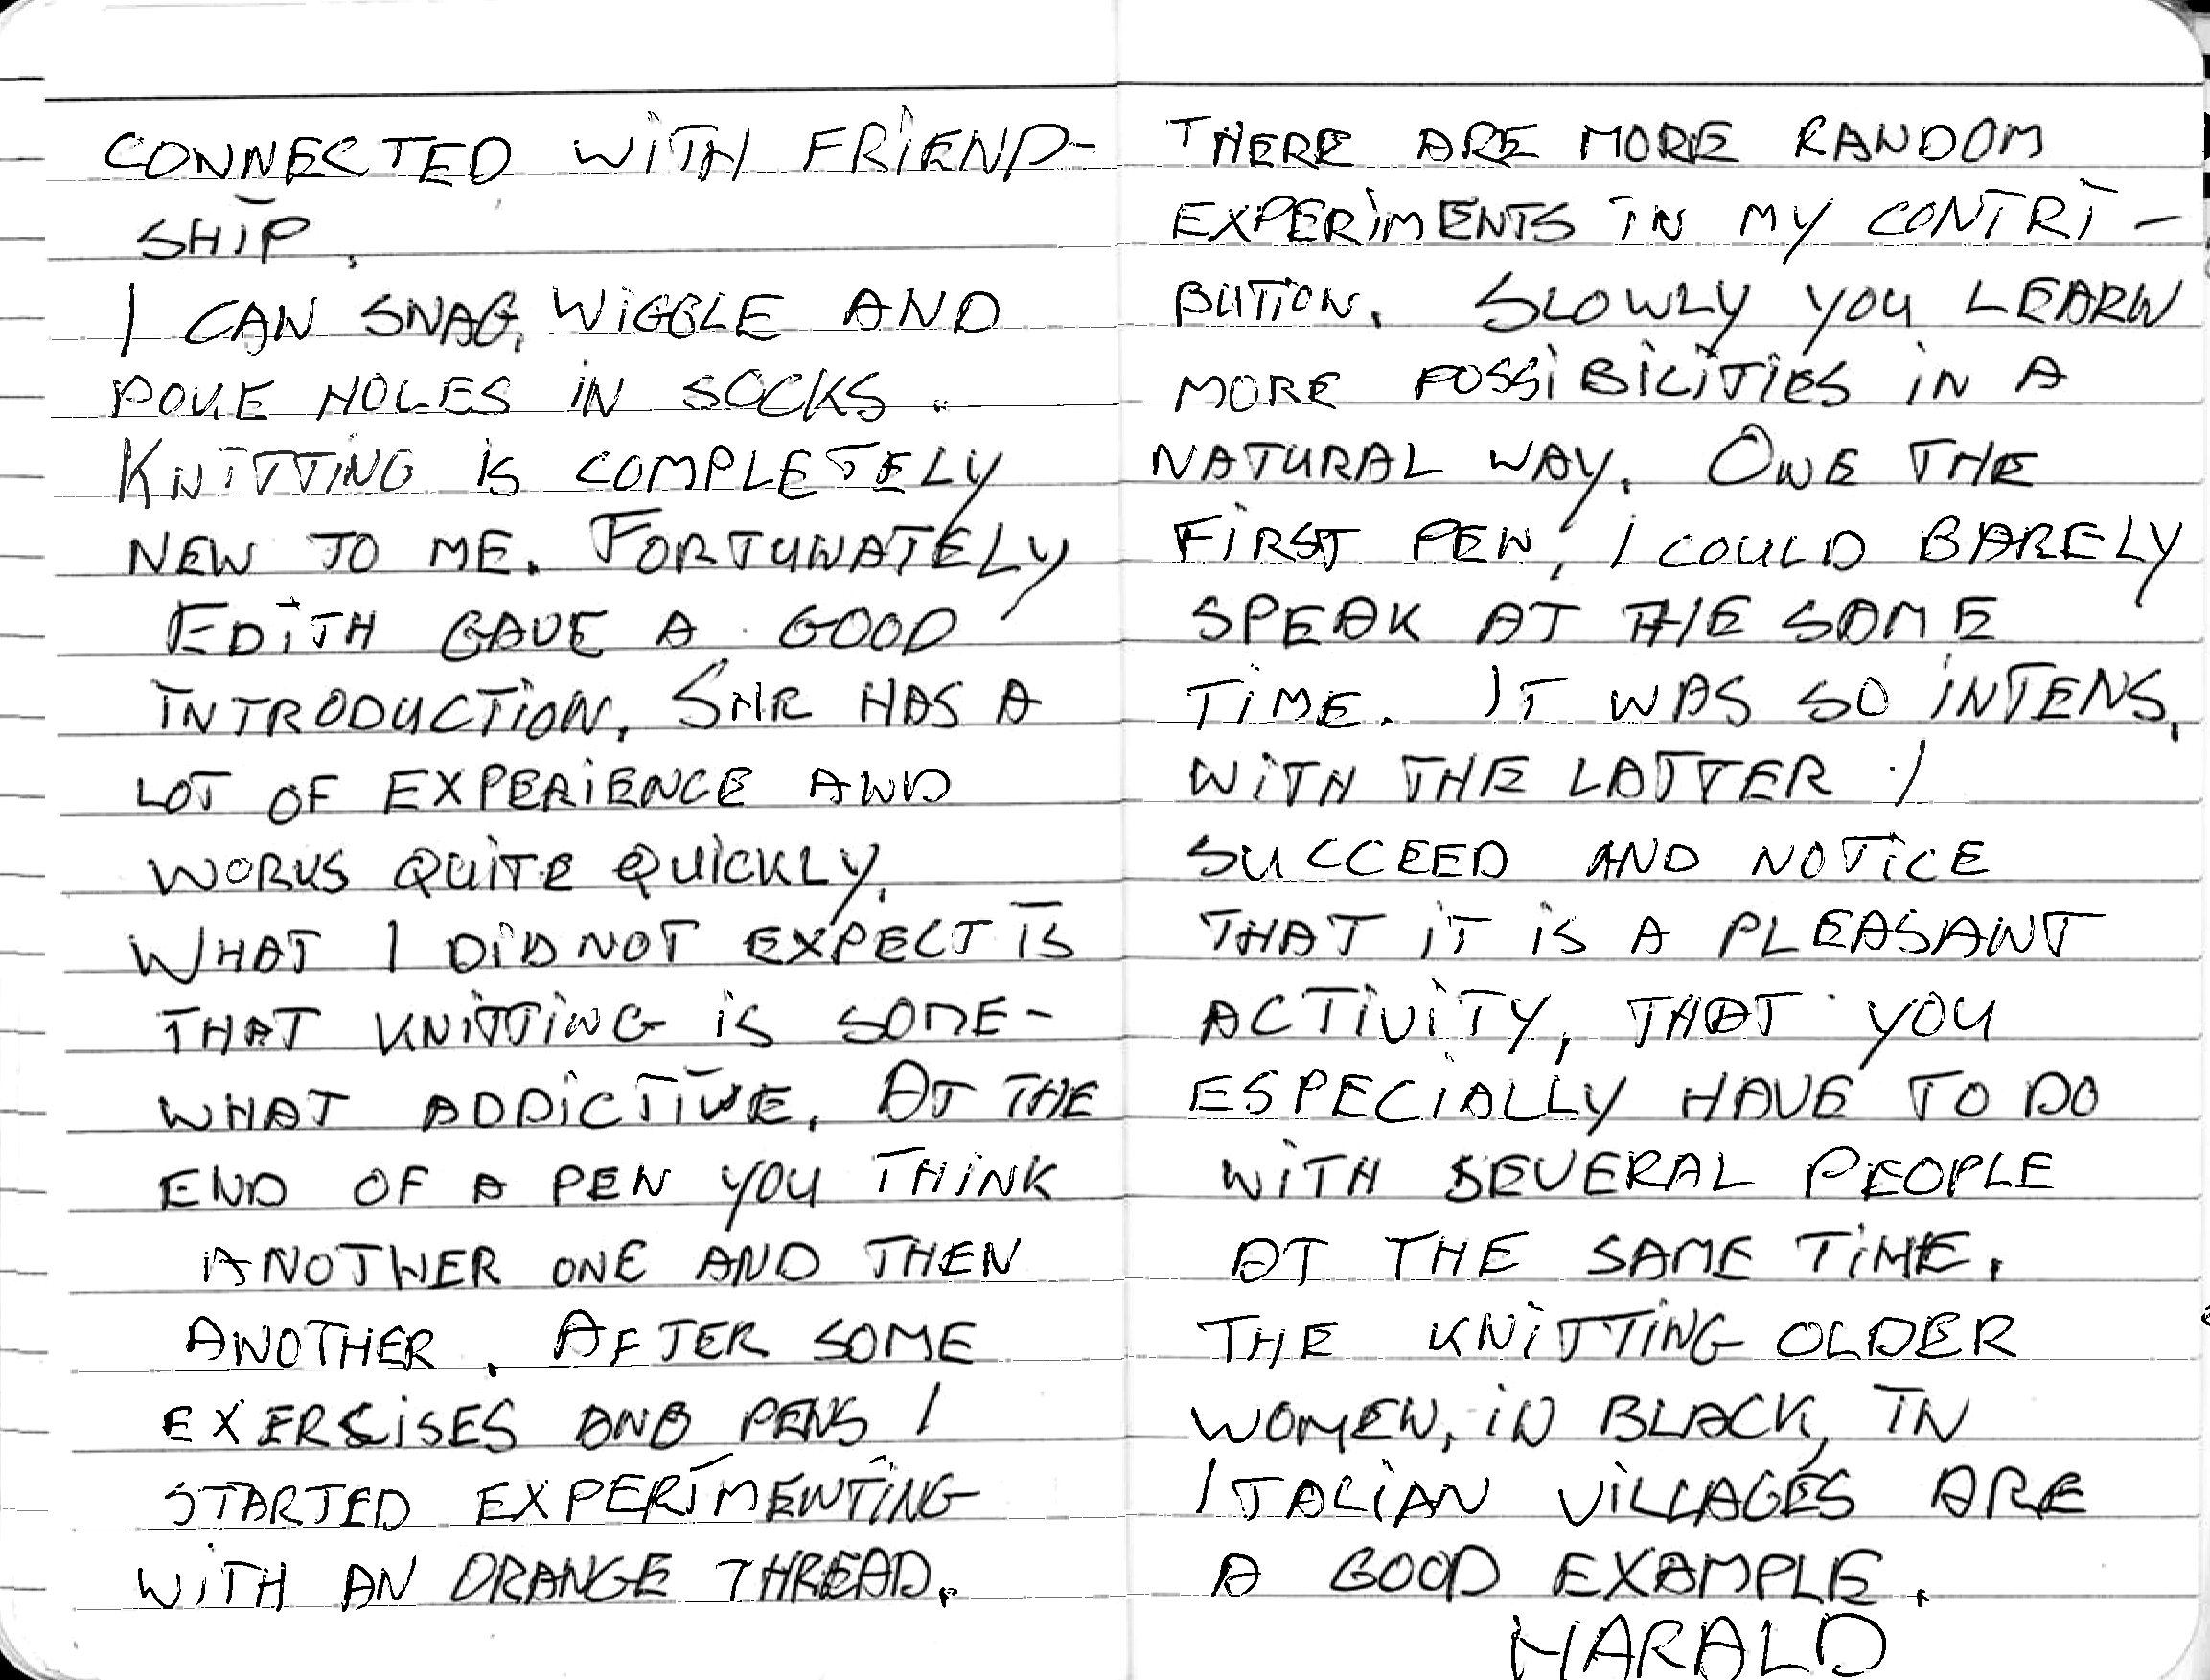 CONNECTED WITH FRIEND-
SHIP.
I CAN SNAG, WIGGLE AND
POKE HOLES IN SOCKS.
KNITTING IS COMPLETELY
NEW TO ME. FORTUNATELY
EDITH GAVE A GOOD
INTRODUCTION. SHE HAS A
LOT OF EXPERIENCE AND
WORKS QUITE QUICKLY.
WHAT I DID NOT EXPECT IS
THAT KNITTING IS SOME-
WHAT ADDICTIVE. AT THE
END OF A PEN YOU THINK
ANOTHER ONE AND THEN
ANOTHER. AFTER SOME
EXERCISES AND PENS I
STARTED EXPERIMENTING
WITH AN ORANGE THREAD.
THERE ARE MORE RANDOM
EXPERIMENTS IN MY CONTRI-
BUTION. SLOWLY YOU LEARN
MORE POSSIBILITIES IN A
NATURAL WAY. ONE THE
FIRST PEN, I COULD BARELY
SPEAK AT THE SAME
TIME. IT WAS SO INTENS,
WITH THE LATTER I
SUCCEED AND NOTICE
THAT IT IS A PLEASANT
ACTIVITY, THAT YOU
ESPECIALLY HAVE TO DO
WITH SEVERAL PEOPLE
AT THE SAME TIME.
THE KNITTING OLDER
WOMEN, IN BLACK, IN
ITALIAN VILLAGES ARE
A GOOD EXAMPLE.
HARALD